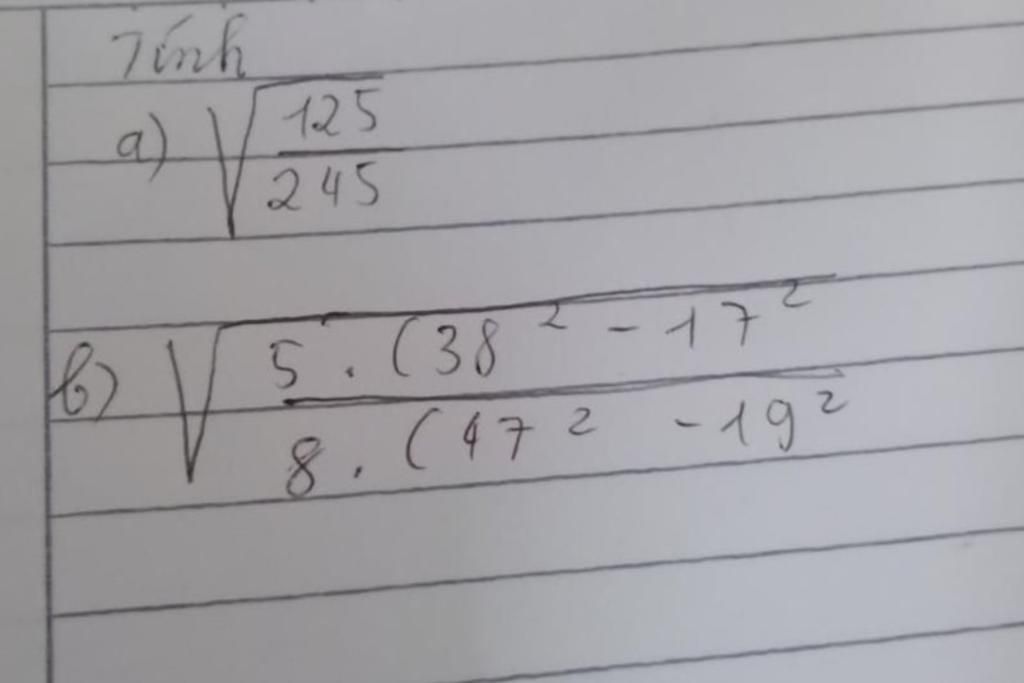 Tính
a) √(125/245)
b) √(5 . (38² - 17² / 8 . (47² - 19²)